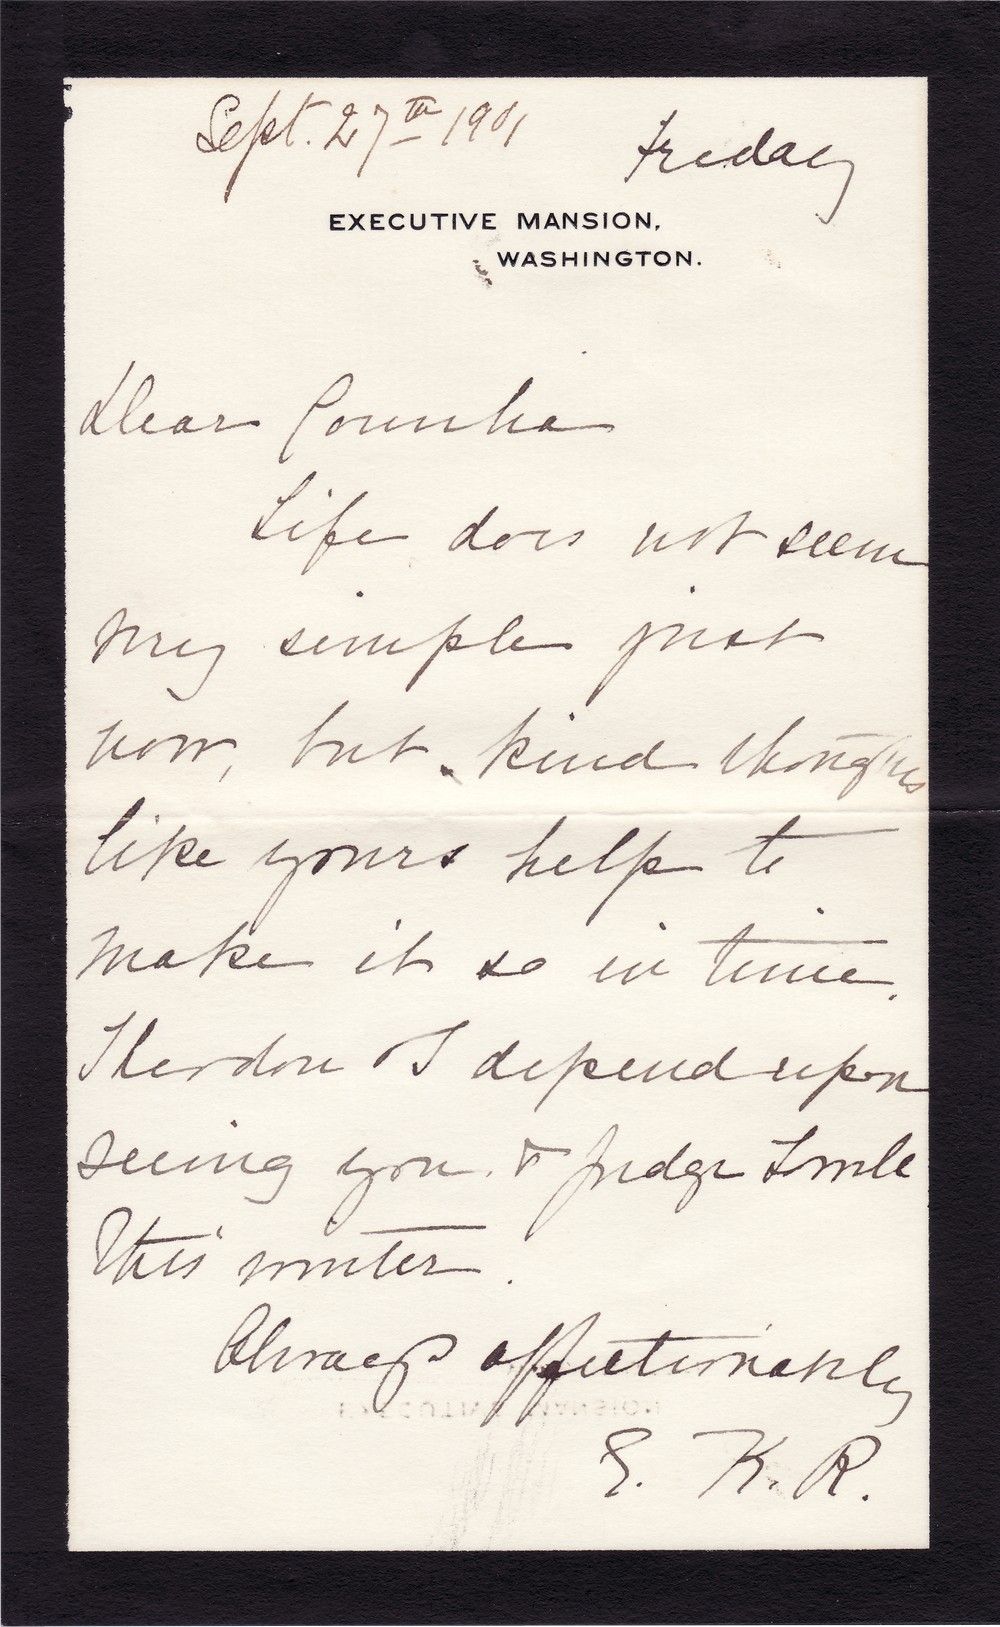 Sept. 27th 1901
Friday
EXECUTIVE MANSION,
WASHINGTON.
Dear
Life does not seem
very simple just
now, but kind thoughts
like yours help to
make it so in time.
Theodore & I depend upon
seeing you & Judge
this winter.
Always affectionately
E. K. R.